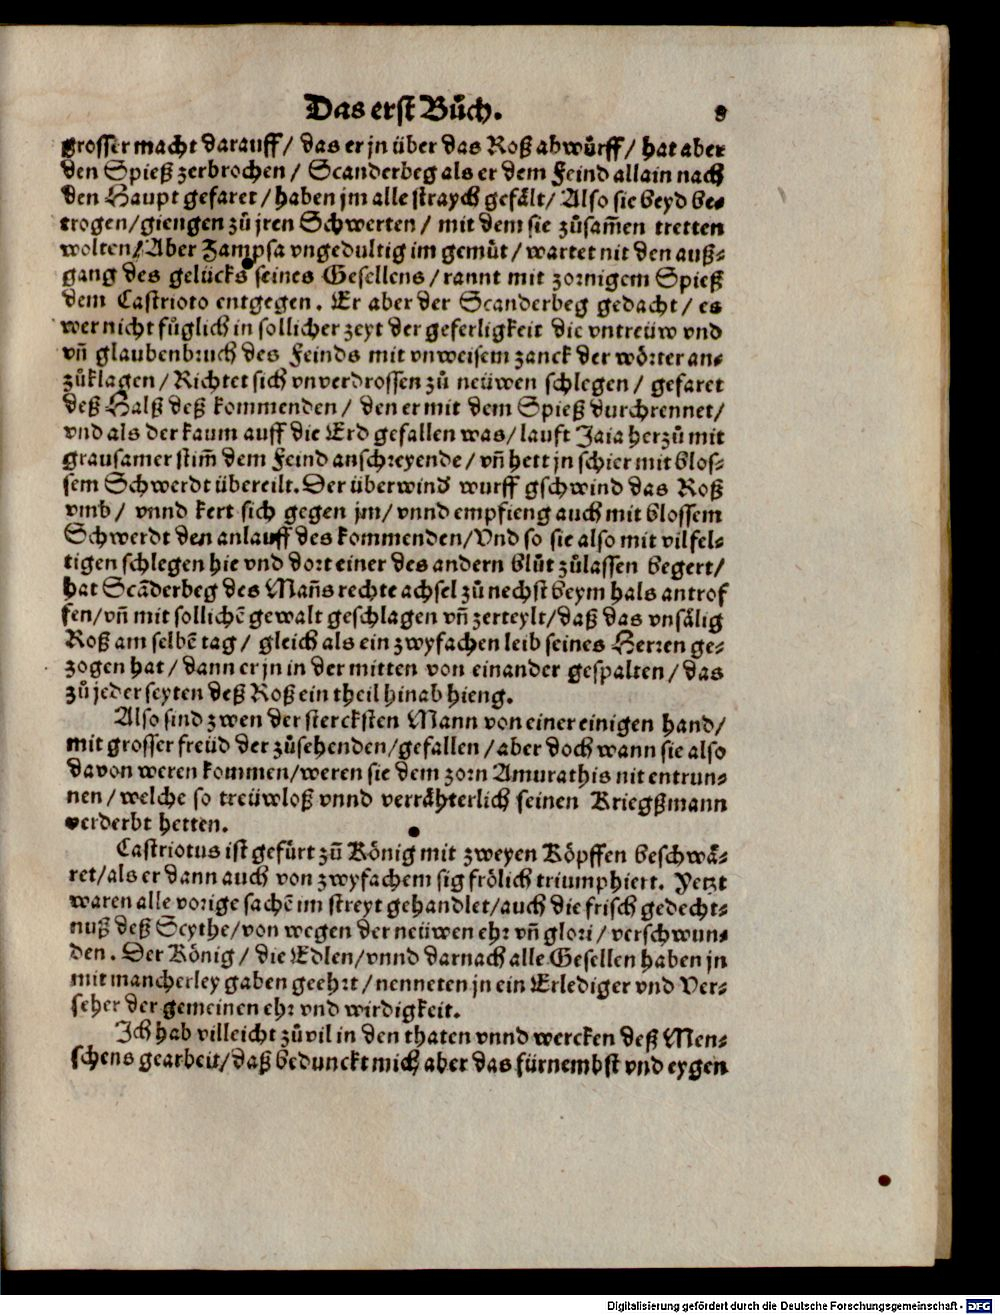 Das erst Bůch. 8
grosser macht darauff / das er jn über das Roß abwürff / hat aber
den Spieß zerbrochen / Scanderbeg als er dem Feind allain nach
den Haupt gefaret / haben jm alle straych gefält / Also sie beyd be-
trogen / giengen zů jren Schwerten / mit dem sie zůsam̃en tretten
wolten / Aber Zampsa vngedultig im gemůt / wartet nit den auß-
gang des gelücks seines Gesellens / rannt mit zornigem Spieß
dem Castrioto entgegen. Er aber der Scanderbeg gedacht / es
wer nicht fůglich in sollicher zeyt der geferligkeit die vntreüw vnd
vñ glaubenbruch des Feinds mit vnweisem zanck der wörter an-
zůklagen / Richtet sich vnverdrossen zů neüwen schlegen / gefaret
deß Halß deß kommenden / den er mit dem Spieß durchrennet /
vnd als der kaum auff die Erd gefallen was / lauft Jaia herzů mit
grausamer stim̃ dem Feind anschreyende / vñ hett jn schier mit blos-
sem Schwerdt übereilt. Der überwind' wurff gschwind das Roß
vmb / vnnd kert sich gegen jm / vnnd empfieng auch mit blossem
Schwerdt den anlauff des kommenden / Vnd so sie also mit vilfel-
tigen schlegen hie vnd dort einer des andern blůt zůlassen begert /
hat Scãderbeg des Mañs rechte achsel zů nechst beym hals antrof
fen / vñ mit sollichẽ gewalt geschlagen vñ zerteylt / daß das vnsälig
Roß am selbẽ tag / gleich als ein zwyfachen leib seines Herren ge-
zogen hat / dann er jn in der mitten von einander gespalten / das
zů jeder seyten deß Roß ein theil hinab hieng.
Also sind zwen der stercksten Mann von einer einigen hand /
mit grosser freüd der zůsehenden / gefallen / aber doch wann sie also
davon weren kommen / weren sie dem zorn Amurathis nit entrun-
nen / welche so treüwloß vnnd verrähterlich seinen Kriegßmann
verderbt hetten.
Castriotus ist gefürt zů König mit zweyen Köpffen beschwä-
ret / als er dann auch von zwyfachem sig frölich triumphiert. Yetzt
waren alle vorige sachẽ im streyt gehandlet / auch die frisch gedecht-
nuß deß Scythe / von wegen der neüwen ehr vñ glori / verschwun-
den. Der König / die Edlen / vnnd darnach alle Gesellen haben jn
mit mancherley gaben geehrt / nenneten jn ein Erlediger vnd Ver-
seher der gemeinen ehr vnd wirdigkeit.
Ich hab villeicht zůvil in den thaten vnnd wercken deß Men-
schens gearbeit / daß bedunckt mich aber das fürnembst vnd eygen
Digitalisierung gefördert durch die Deutsche Forschungsgemeinschaft - DFG